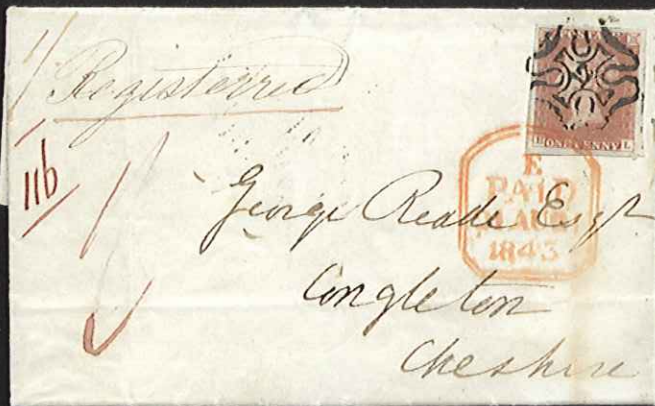 Registered
116
ONE PENNY L
E
PAID
AUG
1843
George Reade Esqr
Congleton
Cheshire